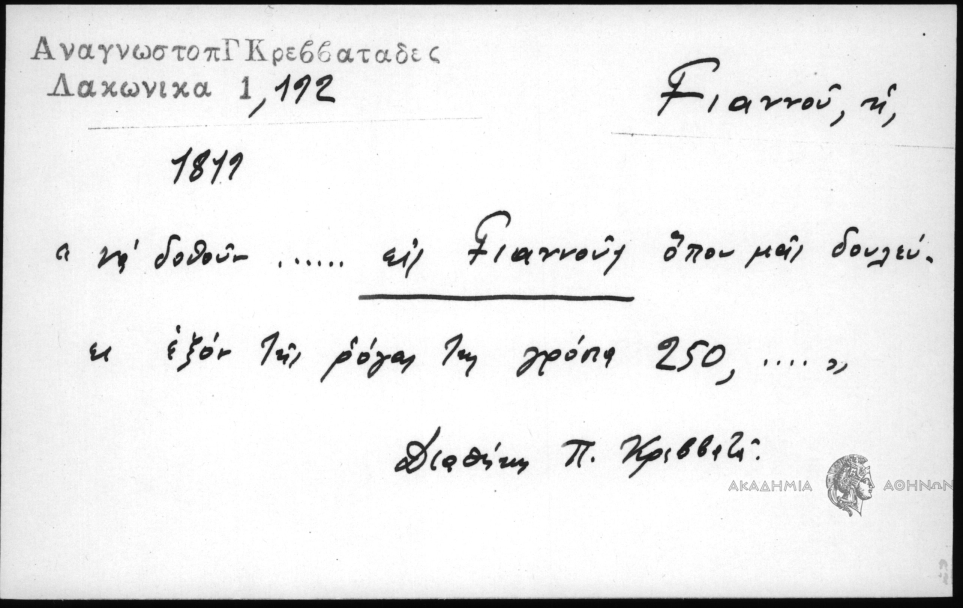 ΑναγνωστοπΓΚρεββαταδες
Λακωνικα 1,192
Γιαννοῦ, ἡ,
1819
« νά δοθοῦν ...... εἰς Γιαννοῦς ὅπου μᾶς δουλεύ-
ει ἐξόν τῆς ρόγας της γρόσια 250, .... »
Διαθήκη Π. Κρεββατᾶ.
ΑΚΑΔΗΜΙΑ ΑΘΗΝΩΝ